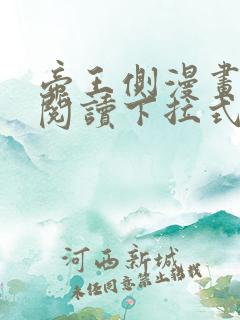 帝王側漫畫
閱讀下拉式
河西新城
未经同意禁止转载